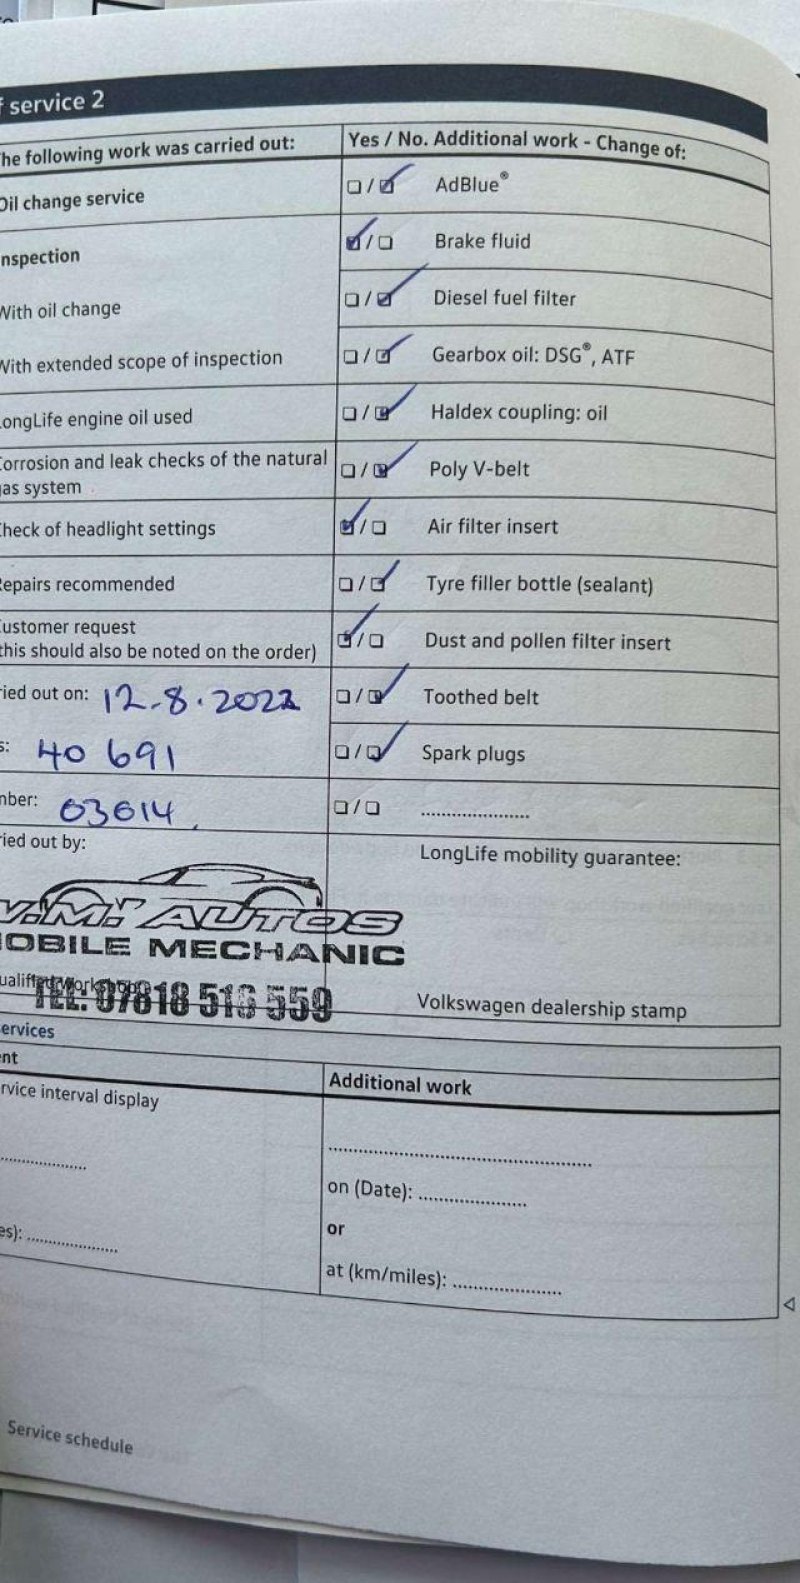 service 2
he following work was carried out:
Yes / No. Additional work - Change of:
Oil change service
☐ / ☑ AdBlue®
nspection
☑ / ☐ Brake fluid
With oil change
☐ / ☑ Diesel fuel filter
With extended scope of inspection
☐ / ☑ Gearbox oil: DSG®, ATF
LongLife engine oil used
☐ / ☑ Haldex coupling: oil
Corrosion and leak checks of the natural
gas system
☐ / ☑ Poly V-belt
Check of headlight settings
☑ / ☐ Air filter insert
Repairs recommended
☐ / ☑ Tyre filler bottle (sealant)
Customer request
(this should also be noted on the order)
☑ / ☐ Dust and pollen filter insert
ried out on: 12.8.2022
☐ / ☑ Toothed belt
s: 40 691
☐ / ☑ Spark plugs
mber: 03014
☐ / ☐ ......................
ried out by:
LongLife mobility guarantee:
V.M. AUTOS
MOBILE MECHANIC
ualified workshop
TEL: 07818 516 559
Volkswagen dealership stamp
ervices
nt
Additional work
rvice interval display
on (Date): ......................
or
es): ......................
at (km/miles): ......................
Service schedule